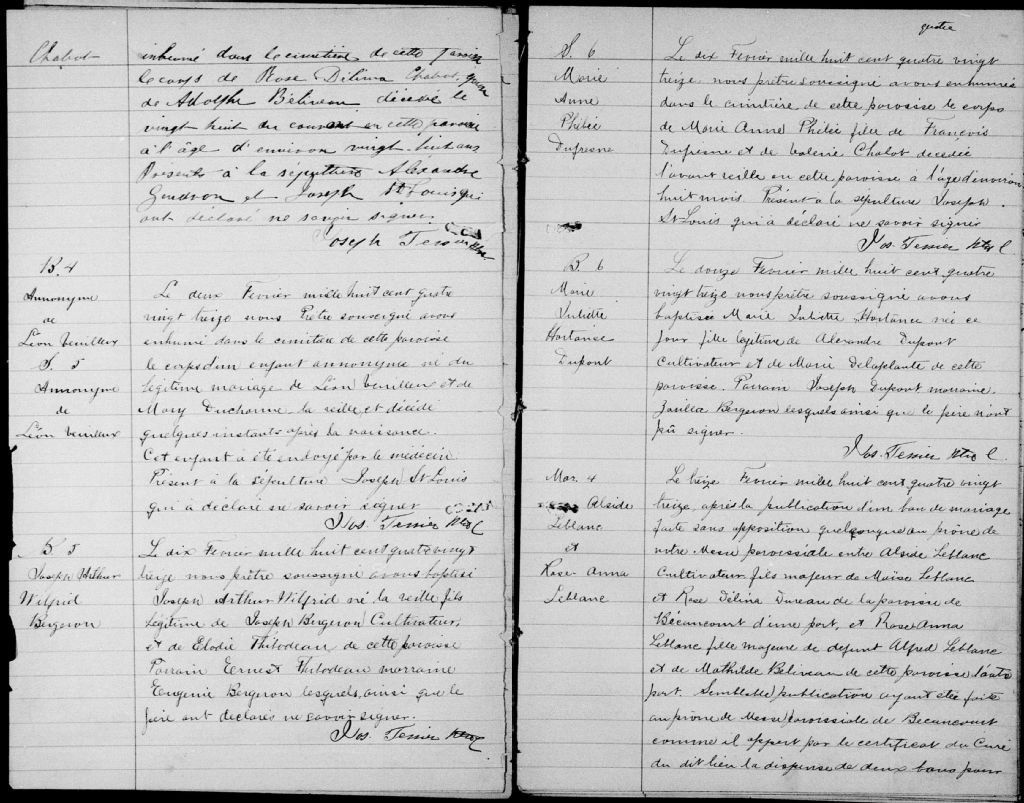 Chabot
inhumé dans le cimetière de cette paroisse
le corps de Rose Délima Chabot,
de Adolphe Béliveau décédée le
vingt huit du courant en cette paroisse
à l'âge d'environ vingt huit ans
Présents à la sépulture Alexandre
Gendron et Joseph St Louis qui
ont déclaré ne savoir signer.
Joseph Tessier
B. 4
Annonyme
de
Léon Veuilleux
S. 5
Annonyme
de
Léon Veuilleux
Le deux Fevrier mille huit cent quatre
vingt treize nous Prêtre soussigné avons
enhumé dans le cimitière de cette paroisse
le corps d'un enfant annonyme né du
légitime mariage de Léon Veuilleux et de
Mary Ducharme la veille, et décédé
quelques instants après la naissance.
Cet enfant à été endoyé par le médecin
Présent à la sépulture Joseph St Louis
qui à declaré ne savoir signer
Jos. Tessier Ptre C
B 5
Joseph Arthur
Wilfrid
Bergeron
Le dix Fevrier mille huit cent quatre vingt
treize nous prêtre soussigné avons baptisé
Joseph Arthur Wilfrid né la veille fils
légitime de Joseph Bergeron Cultivateur,
et de Elodie Thibodeau de cette paroisse
Parrain Ernest Thibodeau marraine
Eugenie Bergeron lesquels, ainsi que le
père ont declarés ne savoir signer.
Jos. Tessier Ptre C
quatre
S. 6
Marie
Anne
Phébée
Dufresne
Le dix Fevrier mille huit cent quatre vingt
treize, nous prêtre soussigné avons enhumé
dans le cimitière, de cette paroisse le corps
de Marie Anne Phébée fille de François
Dufresne et de Valerie Chabot decedée
l'avant veille en cette paroisse à l'âge d'environ
huit mois. Présent à la sépulture Joseph
St-Louis qui à déclaré ne savoir signer
Jos. Tessier Ptre C.
B. 6
Marie
Juliette
Hortanse
Dupont
Le douze Fevrier mille huit cent quatre
vingt treize nous prêtre soussigné avons
baptisée Marie Juliette Hortance née ce
jour fille légitime de Alexandre Dupont
Cultivateur et de Marie Delaplante de cette
paroisse. Parrain Joseph Dupont, marraine,
Bergeron lesquels ainsi que le père n'ont
pû signer.
Jos. Tessier Ptre C.
Mar. 4
Alside
Leblanc
et
Rose-Anna
Leblanc
Le treize Fevrier mille huit cent quatre vingt
treize, après la publication d'un ban de mariage
faite sans opposition quelconque au prône de
notre Messe paroissiale entre Alside Leblanc
Cultivateur fils majeur de Moïse Leblanc
et Rose Délina Dureau de la paroisse de
Bécancourt d'une part, et Rose Anna
Leblanc fille majeure de defunt Alfred Leblanc
et de Mathilde Beliveau de cette paroisse l'autre
part. Semblable publication ayant étée faite
au prône de Messe paroissiale de Becancourt
comme il appert par le certificat du Curé
du dit lieu la dispense de deux bans pour